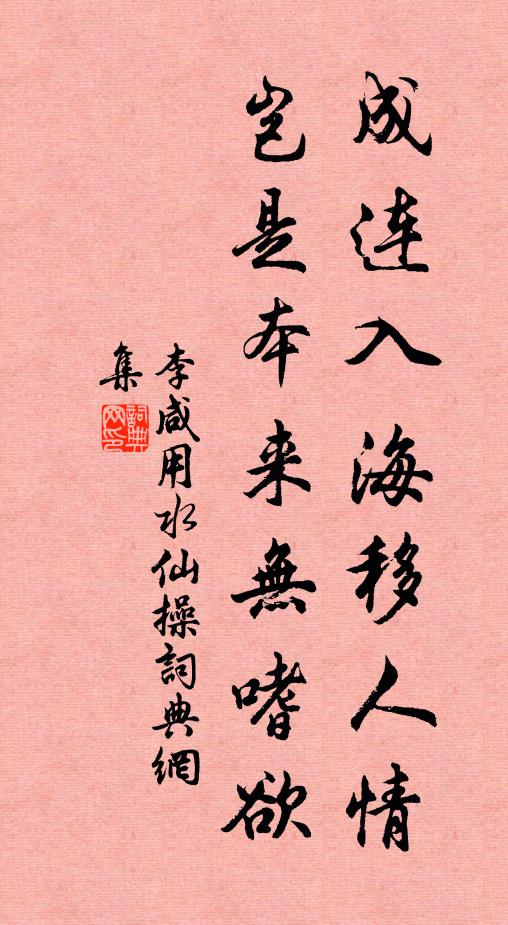 成連入海移人情
豈是本来無嗜欲
李咸用水仙操詞典網
集
詞典
网印